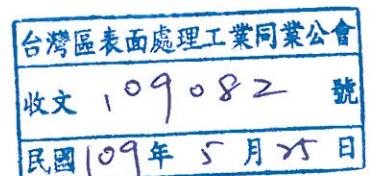 台灣區表面處理工業同業公會
收文 109082 號
民國 109 年 5 月 25 日